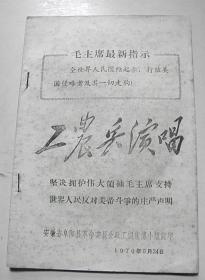 毛主席最新指示
全世界人民团结起来，打败美
国侵略者及其一切走狗！
工农兵演唱
坚决拥护伟大领袖毛主席支持
世界人民反对美帝斗争的庄严声明
安徽省阜阳县革命委员会政工组
1970年5月24日